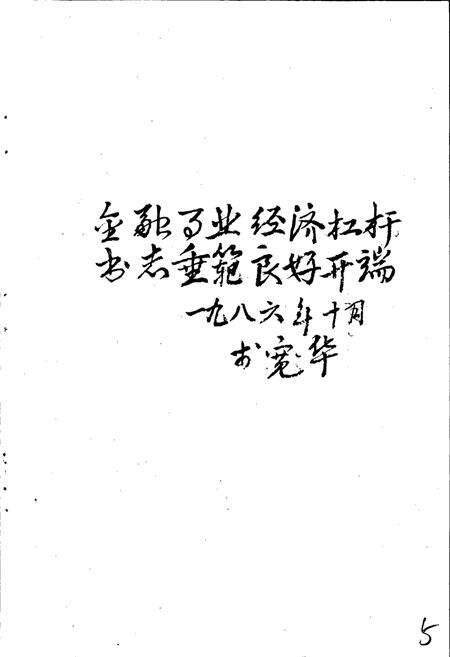 金融事业经济杠杆
书志垂範良好开端
一九八六年十月
宽华
5